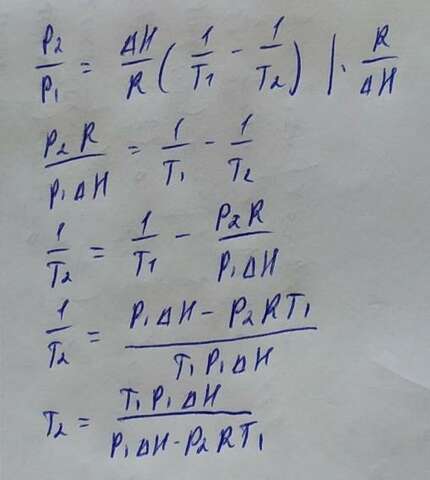 P₂/P₁ = ΔH/R ( 1/T₁ - 1/T₂ ) | · R/ΔH
P₂R/P₁ΔH = 1/T₁ - 1/T₂
1/T₂ = 1/T₁ - P₂R/P₁ΔH
1/T₂ = (P₁ΔH - P₂RT₁)/(T₁P₁ΔH)
T₂ = (T₁P₁ΔH)/(P₁ΔH - P₂RT₁)